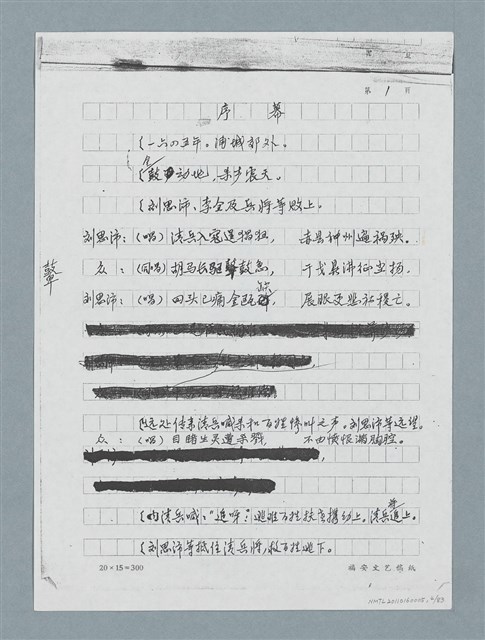 第 1 页
序 幕
〔一六四五年。浦城郊外。
〔鼓声动地，杀声震天。
〔刘思沛、李全及兵将等败上。
刘思沛：（唱）清兵入寇逞猖狂， 赤县神州遍祸殃。
鼙
众：（同唱）胡马长驱鼙鼓急， 干戈昙沸征尘扬。
刘思沛：（唱）回头已痛金瓯 ， 辰眼更愁社稷亡。
〔远处传来清兵喊杀和百姓惨叫之声。刘思沛等远望。
众：（唱）目睹生灵遭杀戮， 不由愤恨满胸腔。
〔内清兵喊：“追呀！”逃难百姓扶老携幼上。清兵追上。
〔刘思沛等抵住清兵将，救百姓逃下。
20×15=300
福安文艺稿纸
NMTL20110160005-2/83